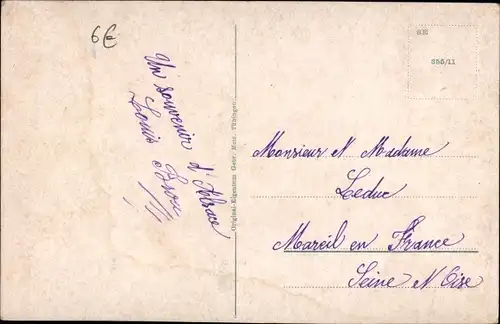 6€
Un souvenir d'Alsace
Louis
Original-Eigentum Gebr. Metz, Tübingen.
SE
555/11
Monsieur N Madame
Leduc
Mareil en France
Seine N Oise